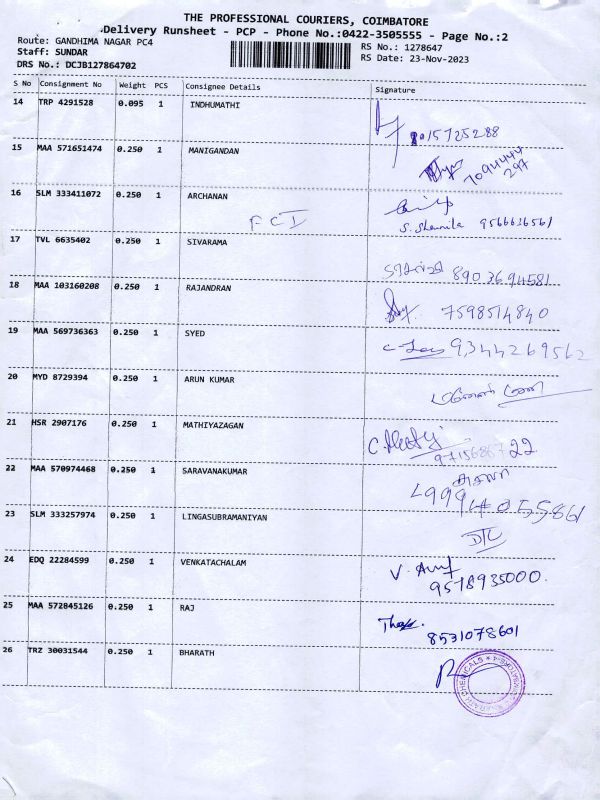 THE PROFESSIONAL COURIERS, COIMBATORE
Delivery Runsheet - PCP - Phone No.:0422-3505555 - Page No.:2
Route: GANDHIMA NAGAR PC4
Staff: SUNDAR
DRS No.: DCJB127864702
RS No.: 1278647
RS Date: 23-Nov-2023
S No Consignment No Weight PCS Consignee Details Signature
14 TRP 4291528 0.095 1 INDHUMATHI
15 MAA 571651474 0.250 1 MANIGANDAN
7094444
297
16 SLM 333411072 0.250 1 ARCHANAN
FCI
S. Sharmila 9566636561
17 TVL 6635402 0.250 1 SIVARAMA
8903694581
18 MAA 103160208 0.250 1 RAJANDRAN
7598514840
19 MAA 569736363 0.250 1 SYED
9344269562
20 MYD 8729394 0.250 1 ARUN KUMAR
21 HSR 2907176 0.250 1 MATHIYAZAGAN
22 MAA 570974468 0.250 1 SARAVANAKUMAR
23 SLM 333257974 0.250 1 LINGASUBRAMANIYAN
24 EDQ 22284599 0.250 1 VENKATACHALAM
9578935000.
25 MAA 572845126 0.250 1 RAJ
8531078601
26 TRZ 30031544 0.250 1 BHARATH